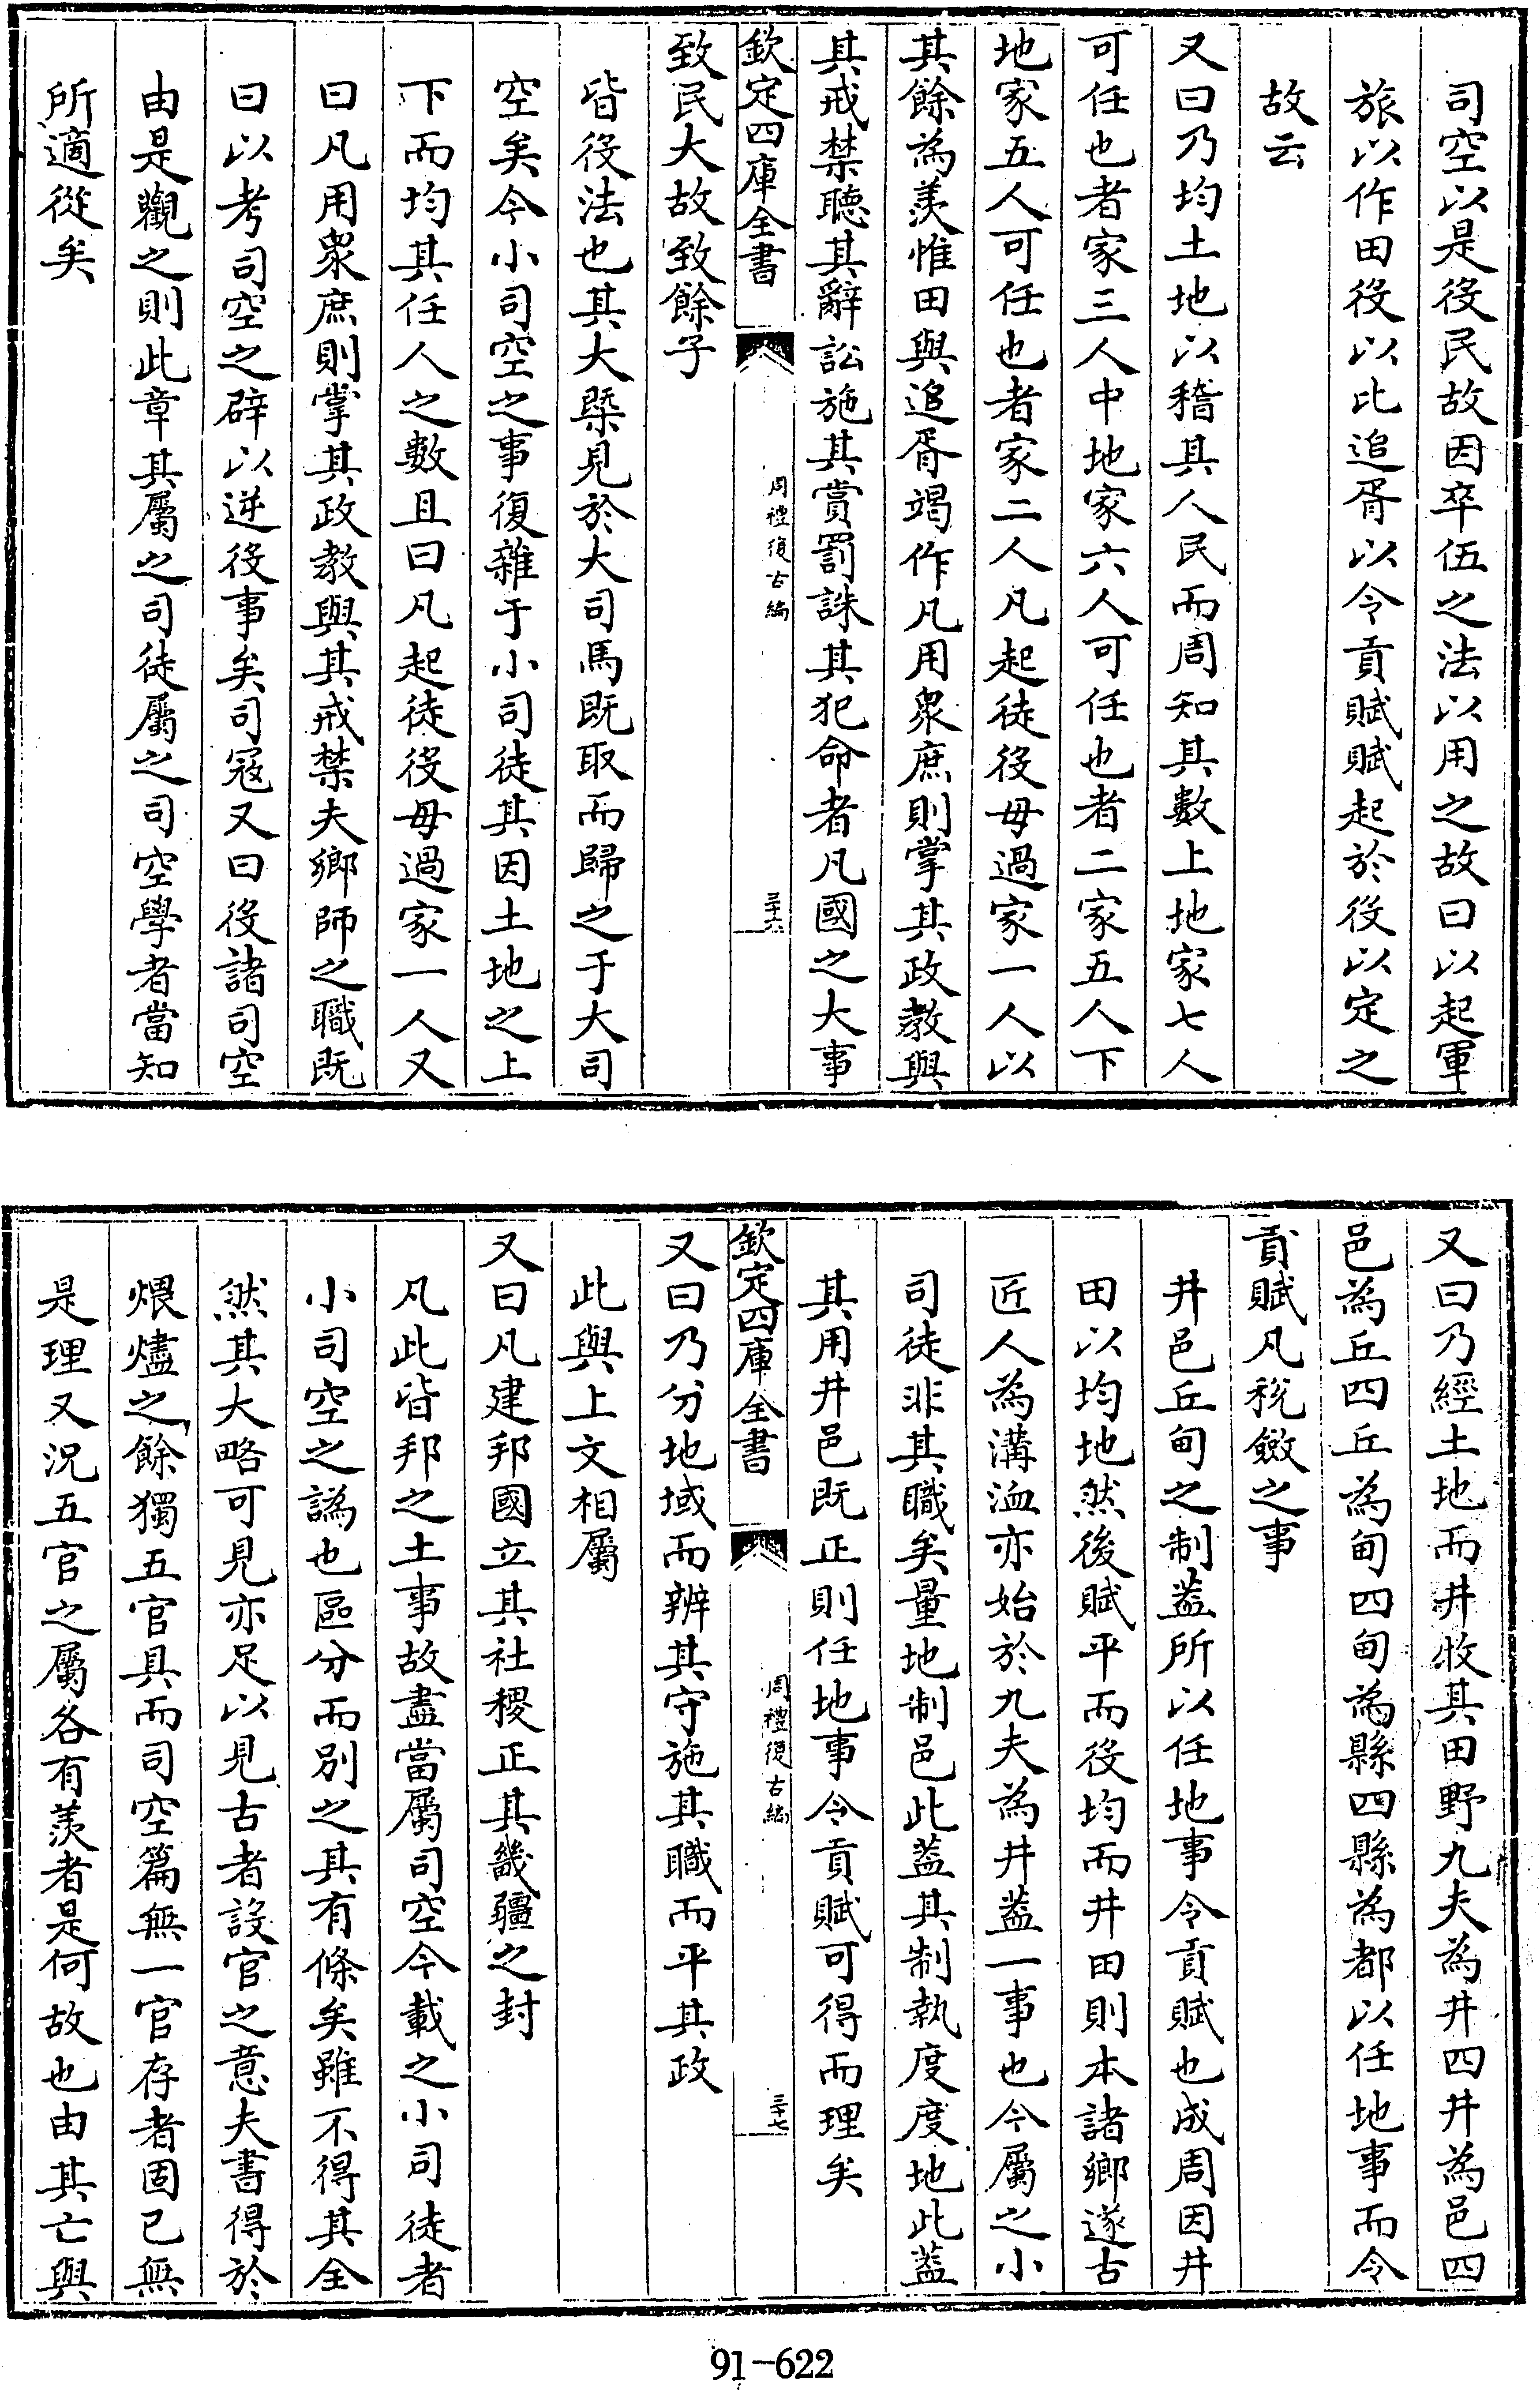 司空以是役民故因卒伍之法以用之故曰以起軍
旅以作田役以比追胥以令貢賦賦起於役以定之
故云
又曰乃均土地以稽其人民而周知其數上地家七人
可任也者家三人中地家六人可任也者二家五人下
地家五人可任也者家二人凡起徒役毋過家一人以
其餘為羨惟田與追胥竭作凡用衆庶則掌其政教與
其戒禁聽其辭訟施其賞罰誅其犯命者凡國之大事
欽定四庫全書 周禮復古編 三十六
致民大故致餘子
皆役法也其大槩見於大司馬既取而歸之于大司
空矣今小司空之事復雜于小司徒其因土地之上
下而均其任人之數且曰凡起徒役毋過家一人又
曰凡用衆庶則掌其政教與其戒禁夫鄉師之職既
曰以考司空之辟以逆役事矣司宼又曰役諸司空
由是觀之則此章其屬之司徒屬之司空學者當知
所適從矣
又曰乃經土地而井牧其田野九夫為井四井為邑四
邑為丘四丘為甸四甸為縣四縣為都以任地事而令
貢賦凡稅斂之事
井邑丘甸之制蓋所以任地事令貢賦也成周因井
田以均地然後賦平而役均而井田則本諸鄉遂古
匠人為溝洫亦始於九夫為井蓋一事也今屬之小
司徒非其職矣量地制邑此蓋其制執度度地此蓋
其用井邑既正則任地事令貢賦可得而理矣
欽定四庫全書 周禮復古編 三十七
又曰乃分地域而辨其守施其職而平其政
此與上文相屬
又曰凡建邦國立其社稷正其畿疆之封
凡此皆邦之土事故盡當屬司空今載之小司徒者
小司空之譌也區分而別之其有條矣雖不得其全
然其大略可見亦足以見古者設官之意夫書得於
煨燼之餘獨五官具而司空篇無一官存者固已無
是理又況五官之屬各有羨者是何故也由其亡與
91-622